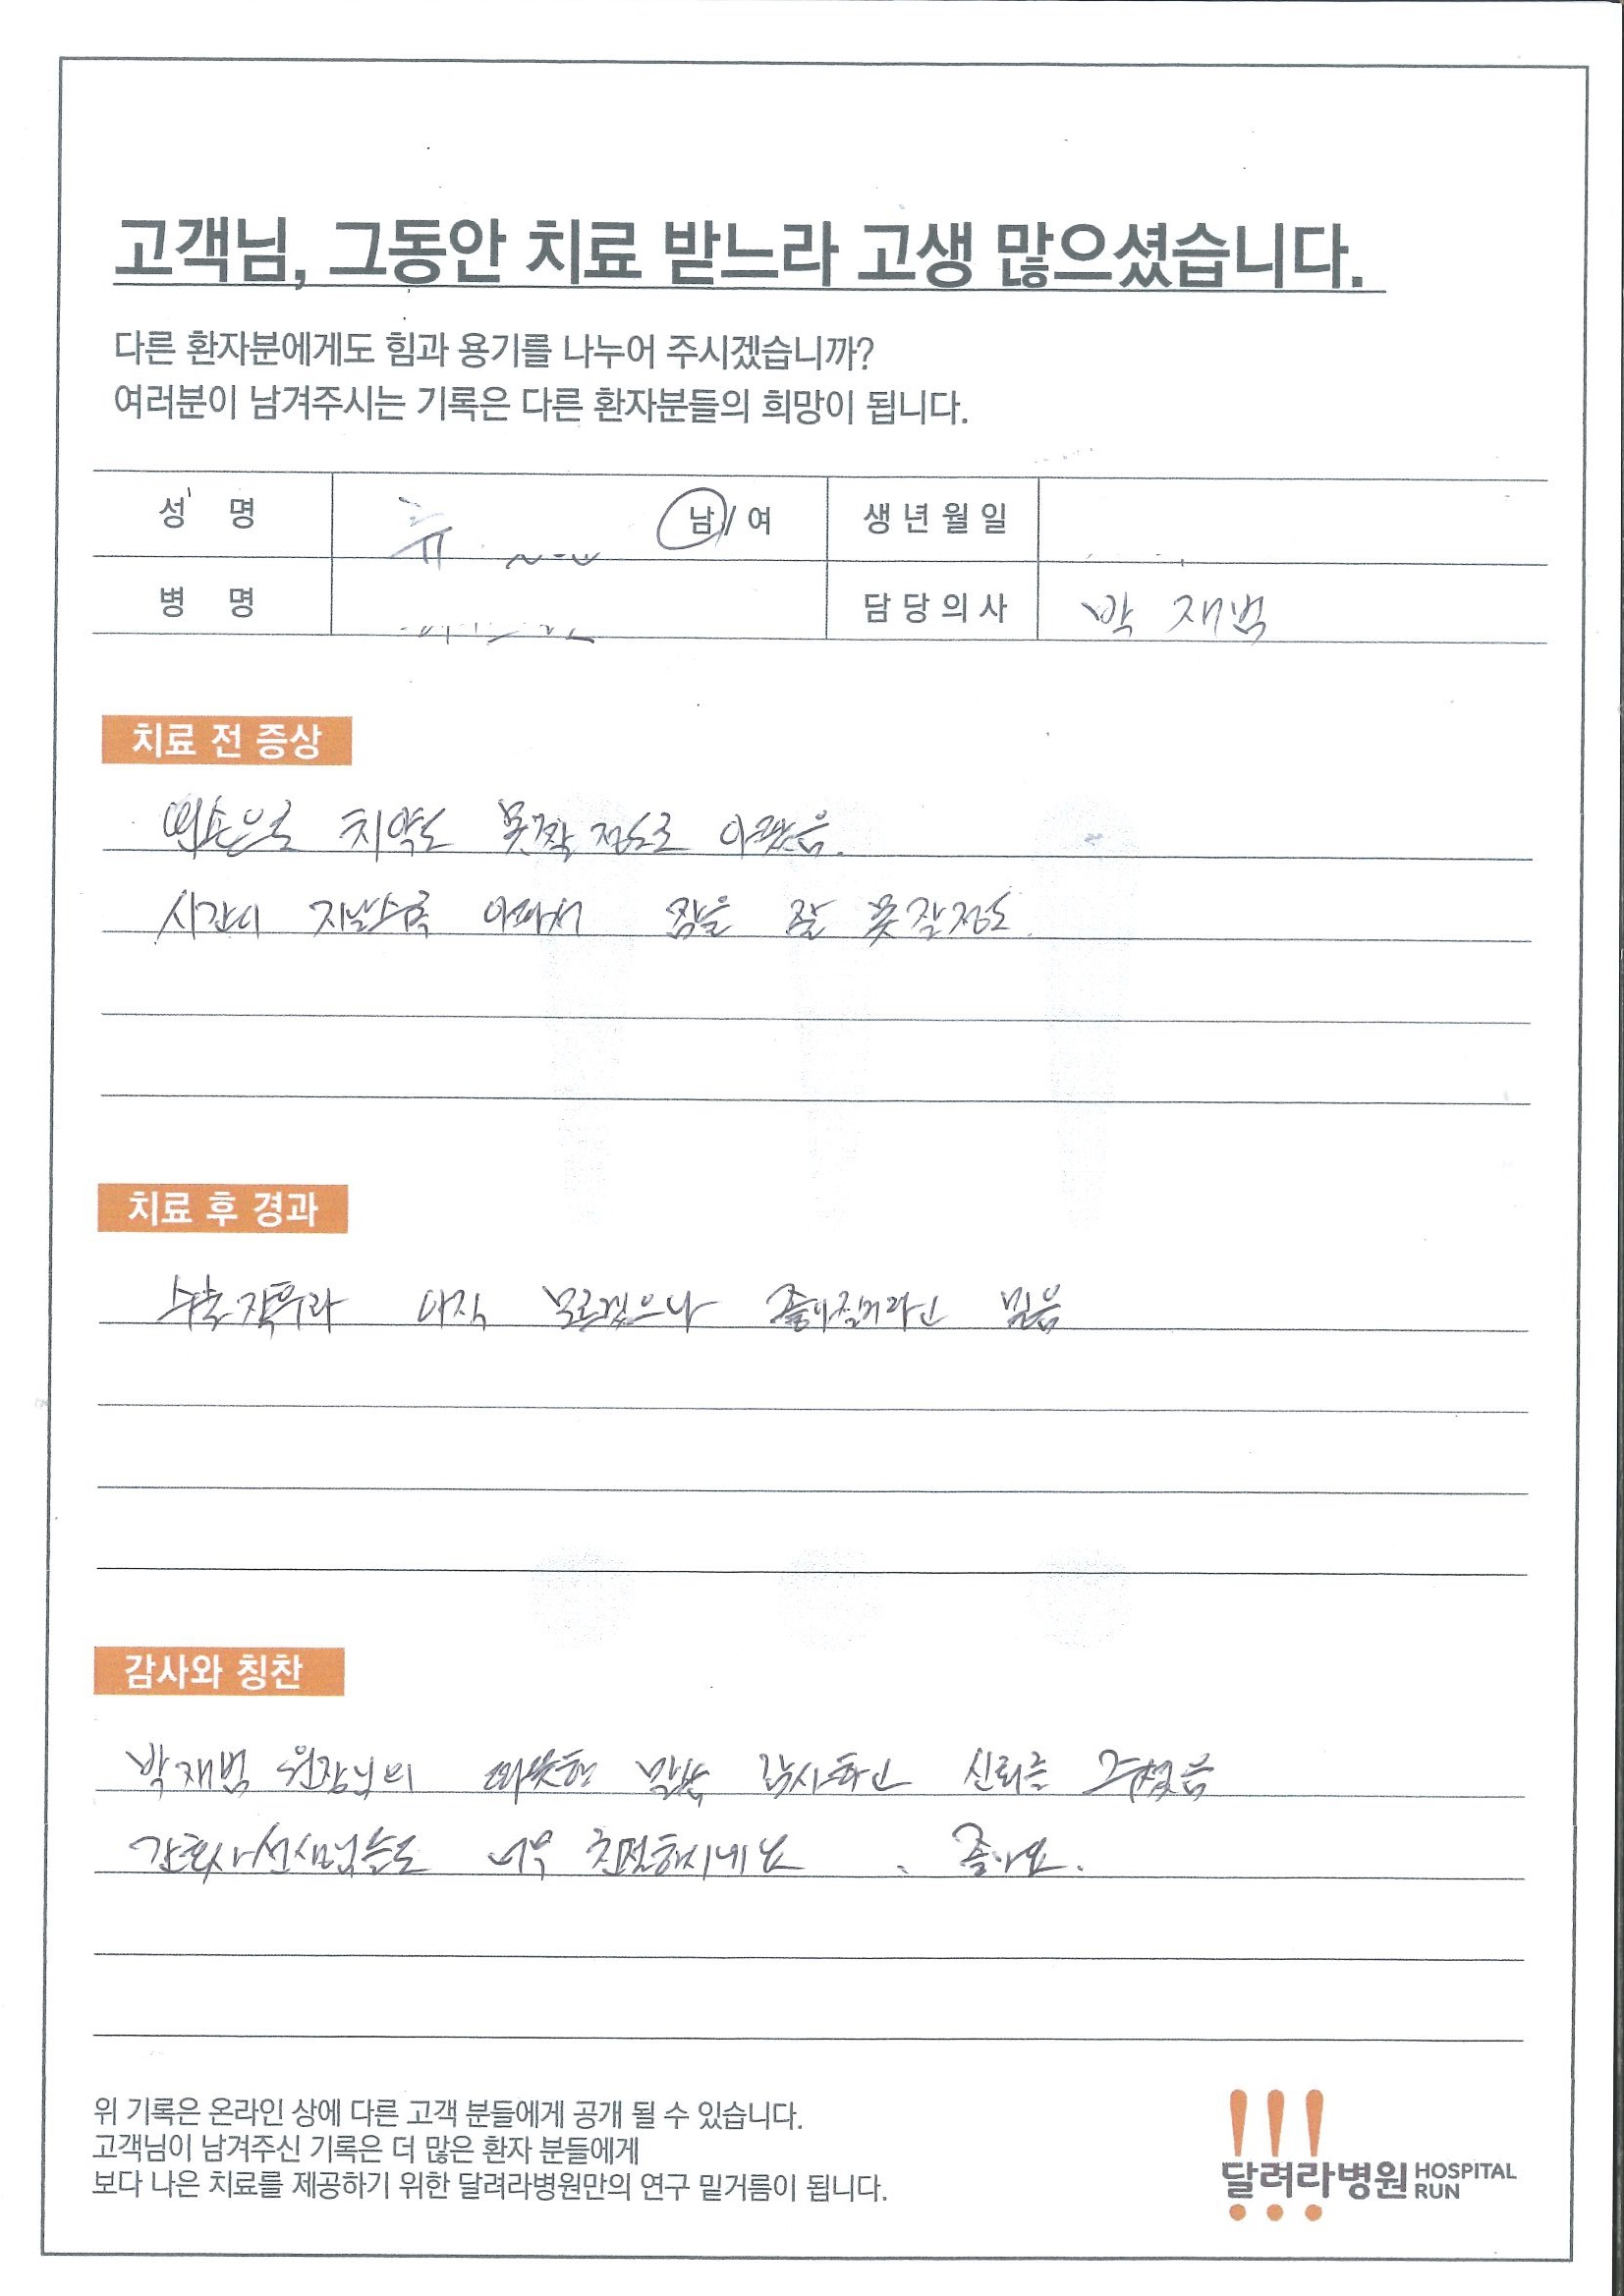 고객님, 그동안 치료 받느라 고생 많으셨습니다.
다른 환자분에게도 힘과 용기를 나누어 주시겠습니까?
여러분이 남겨주시는 기록은 다른 환자분들의 희망이 됩니다.
성 명 남 / 여 생년월일
병 명 담당의사 박 재범
치료 전 증상
왼손으로 치약도 못짤 정도로 아팠음.
시간이 지날수록 아파서 잠을 잘 못잘정도.
치료 후 경과
아직 모르겠으나 좋아질거라고 믿음
감사와 칭찬
박재범 원장님의 따뜻한 말씀 감사하고 신뢰를 주셨음
간호사선생님들도 너무 친절하시네요. 좋아요.
위 기록은 온라인 상에 다른 고객 분들에게 공개 될 수 있습니다.
고객님이 남겨주신 기록은 더 많은 환자 분들에게
보다 나은 치료를 제공하기 위한 달려라병원만의 연구 밑거름이 됩니다.
달려라병원 HOSPITAL RUN